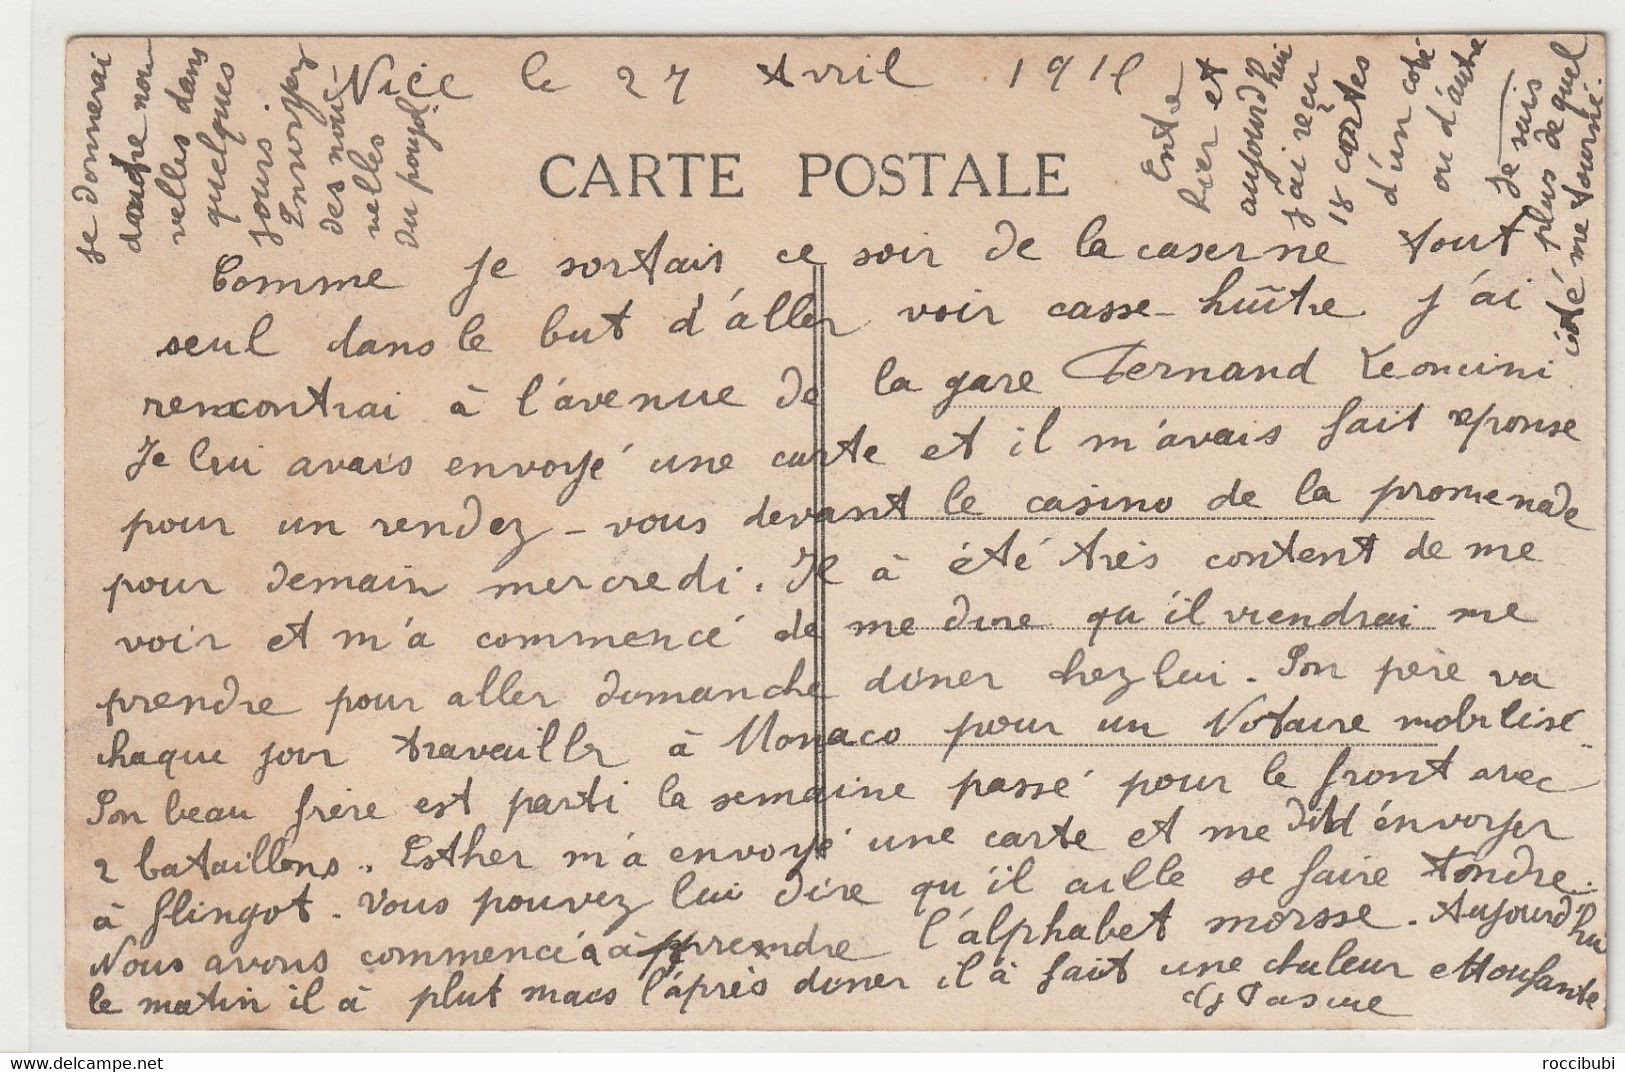 Nice le 27 Avril 191
CARTE POSTALE
Comme je sortais ce soir de la caserne tout
seul dans le but d'aller voir casse-huître j'ai
rencontrai à l'avenue de la gare Fernand
Je lui avais envoyé une carte et il m'avais fait réponse
pour un rendez-vous devant le casino de la promenade
pour demain mercredi. Il à été très content de me
voir et m'a commencé de me dire qu'il viendrai me
prendre pour aller dimanche diner chez lui. Son père va
chaque jour travailler à Monaco pour un Notaire mobilisé.
Son beau frère est parti la semaine passé pour le front avec
2 bataillons. Esther m'à envoyé une carte et me dit d'énvoyer
à flingot. Vous pouvez lui dire qu'il aille se faire tondre.
Nous avons commencé à apprendre l'àlphabet morsse. Aujourd'hui
le matin il à plut mais l'àprès diner il à fait une chaleur ettoufante.
je donnerai
dautre nou
velles dans
quelques
jours
Envoyez
des nou
velles
du
Entre
hier et
aujourd'hui
j'ai reçu
18 cartes
d'un coté
ou d'autre
je suis
plus de quel
côté me tourné.
roccibubi